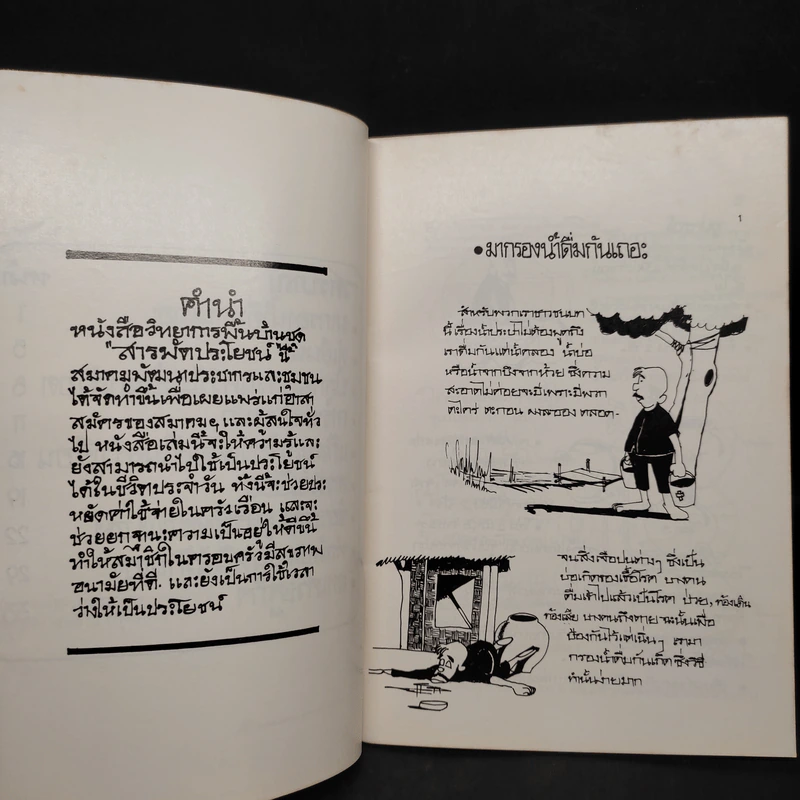 คำนำ
หนังสือวิทยาการพื้นบ้านชุด
"สารพัดประโยชน์" นี้
สมาคมพัฒนาประชากรและชุมชน
ได้จัดทำขึ้นเพื่อเผยแพร่แก่อาสา
สมัครของสมาคมฯ และผู้สนใจทั่ว
ไป หนังสือเล่มนี้จะให้ความรู้และ
ยังสามารถนำไปใช้เป็นประโยชน์
ได้ในชีวิตประจำวัน ทั้งนี้จะช่วยประ
หยัดค่าใช้จ่ายในครัวเรือน และจะ
ช่วยยกฐานะความเป็นอยู่ให้ดีขึ้น
ทำให้สมาชิกในครอบครัวมีสุขภาพ
อนามัยที่ดี. และยังเป็นการใช้เวลา
ว่างให้เป็นประโยชน์
1
• มากรองน้ำดื่มกันเถอะ
สำหรับพวกเราชาวชนบท
นี้เรื่องน้ำประปาไม่ต้องพูดถึง
เราดื่มกันแต่น้ำคลอง น้ำบ่อ
หรือน้ำจากบึงจากห้วย ซึ่งความ
สะอาดไม่ค่อยจะมีเพราะมีพวก
ตะไคร่ ตะกอน ผงละออง ตลอด-
จนสิ่งเจือปนต่างๆ ซึ่งเป็น
บ่อเกิดของเชื้อโรค บางคน
ดื่มเข้าไปแล้วเป็นโรค ป่วย, ท้องเดิน
ท้องเสีย บางคนถึงตาย ฉะนั้นเพื่อ
ป้องกันไว้แต่เนิ่นๆ เรามา
กรองน้ำดื่มกันเถิด ซึ่งวิธี
ทำนั้นง่ายมาก